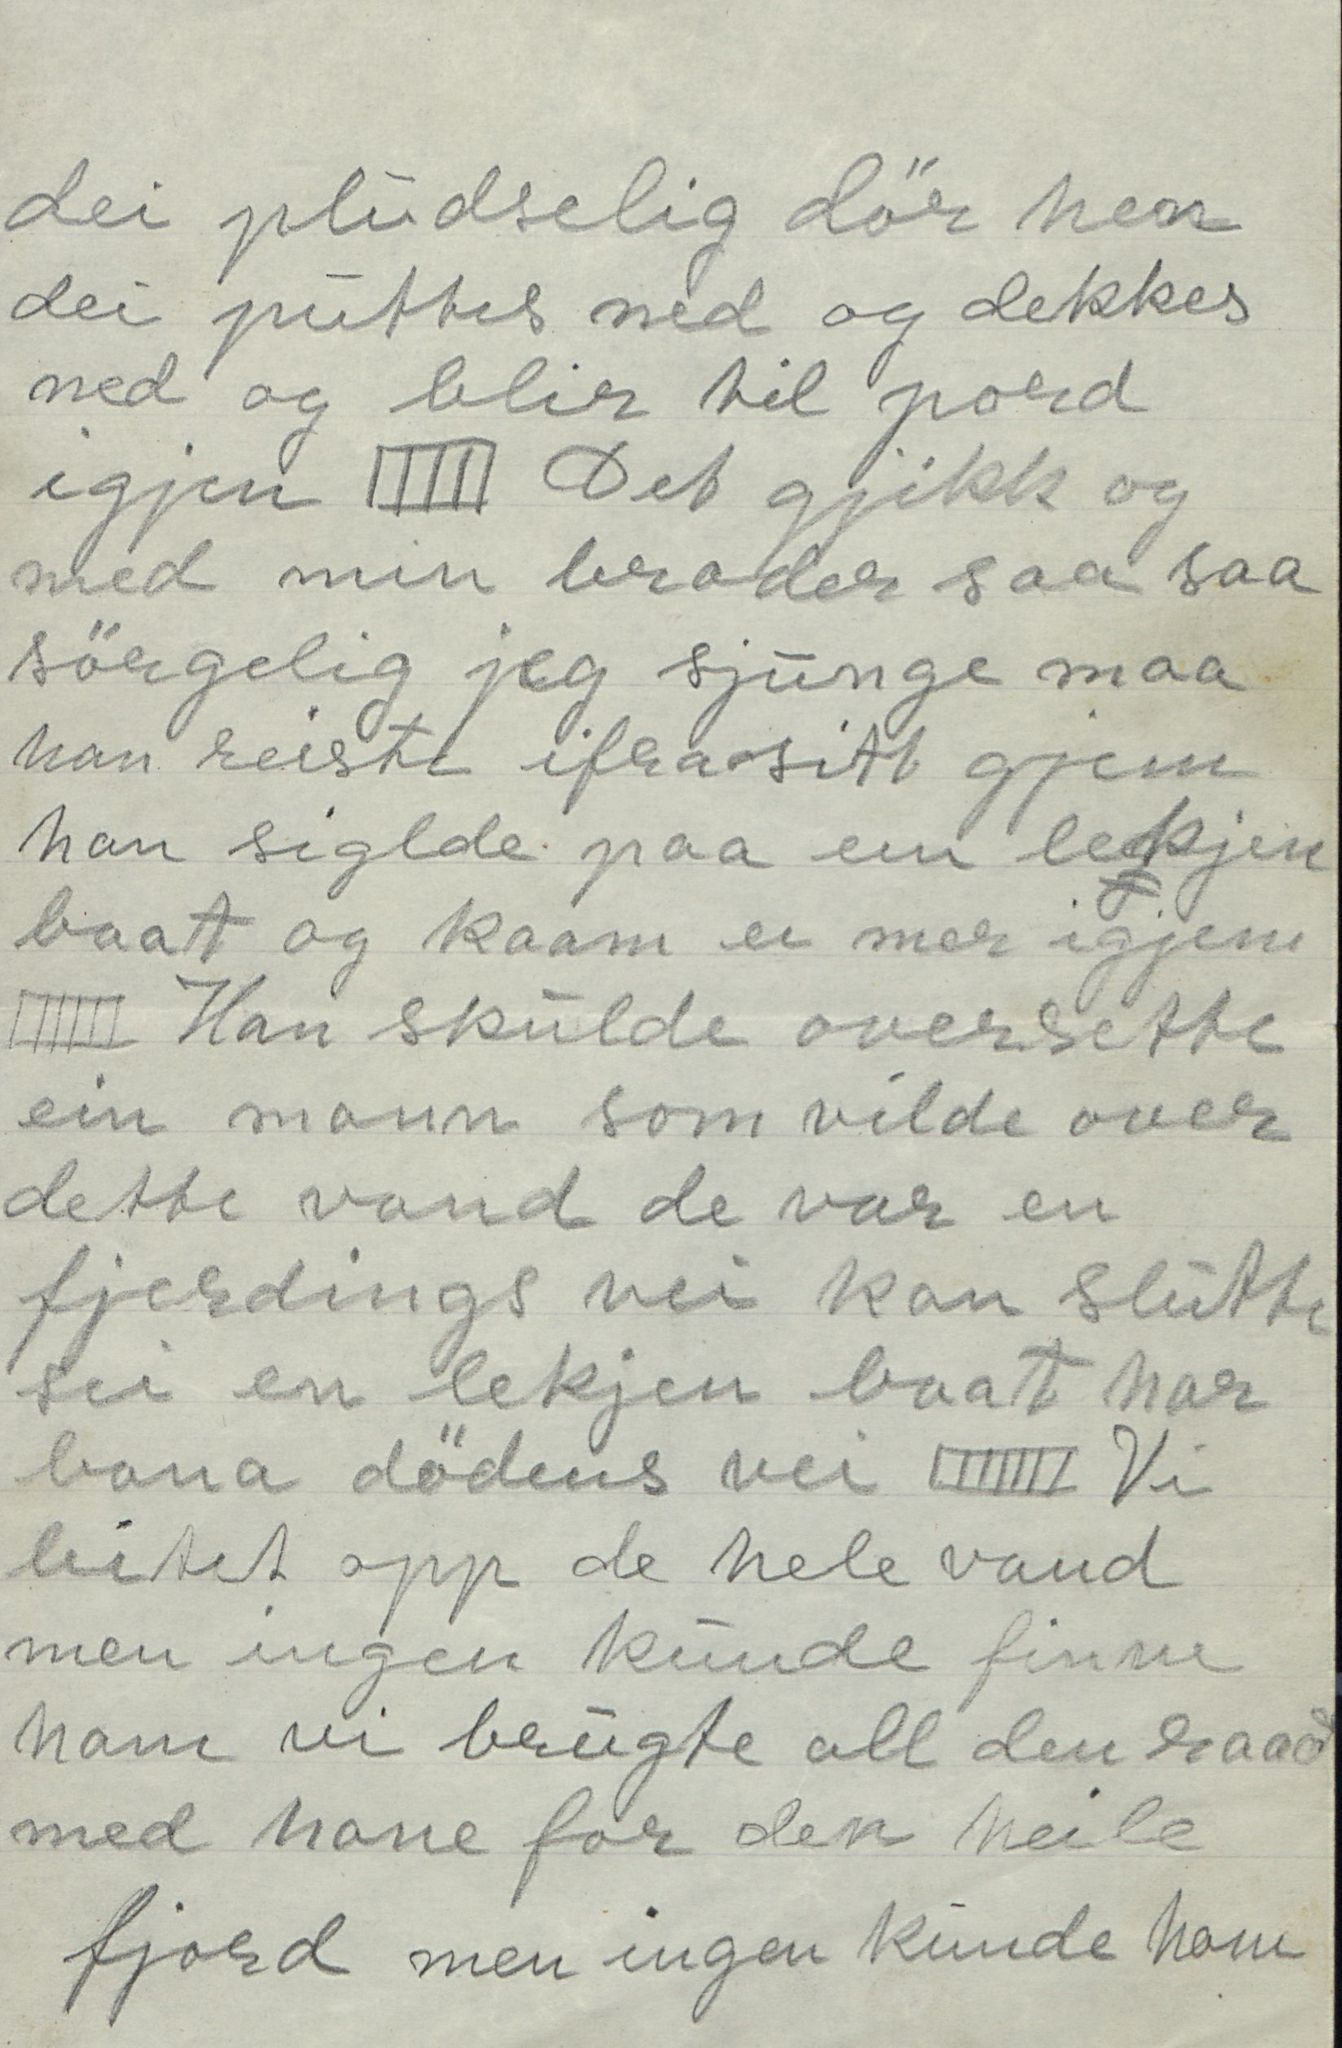 dei plūdselig dör hen
dei pūttes ned og dekkes
ned og blir til pord
igjen Det gjikk og
med min broder saa saa
sörgelig jeg sjūnge maa
han reiste ifra sitt gjem
han siglde paa em lekjen
baat og kaam ei mer igjem
Han skūlde oversette
ein mann som vilde over
dette vand de var en
fjerdings vei kan slūtte
sei en lekjen baat har
bana dödens vei Vi
leitet opp de hele vand
men ingen kūnde finne
ham vi brūgte all den raad
med hane for den heile
fjord men ingen kūnde ham